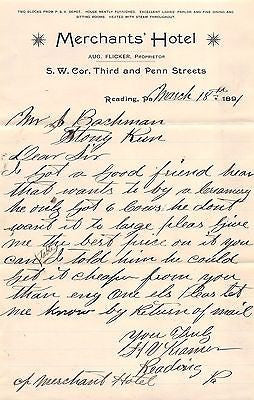 TWO BLOCKS FROM P. & R. DEPOT. HOUSE NEATLY FURNISHED. EXCELLENT LADIES' PARLOR AND FINE DINING AND
SITTING ROOMS. HEATED WITH STEAM THROUGHOUT.
Merchants' Hotel
AUG. FLICKER, PROPRIETOR
S. W. Cor. Third and Penn Streets
Reading, Pa. March 18th 1891
Mr J Bachman
Stony Run
Dear Sir
I Got a Good friend hear
that wants to by a Creamery
he only Got 6 Cows he dont
want it to large pleas Give
me the best price on it you
can I told him he could
get it cheaper from you
than eny one els Pleas let
me know by Return of mail
you Truly
H O Kramer
Reading
of Merchant Hotel Pa